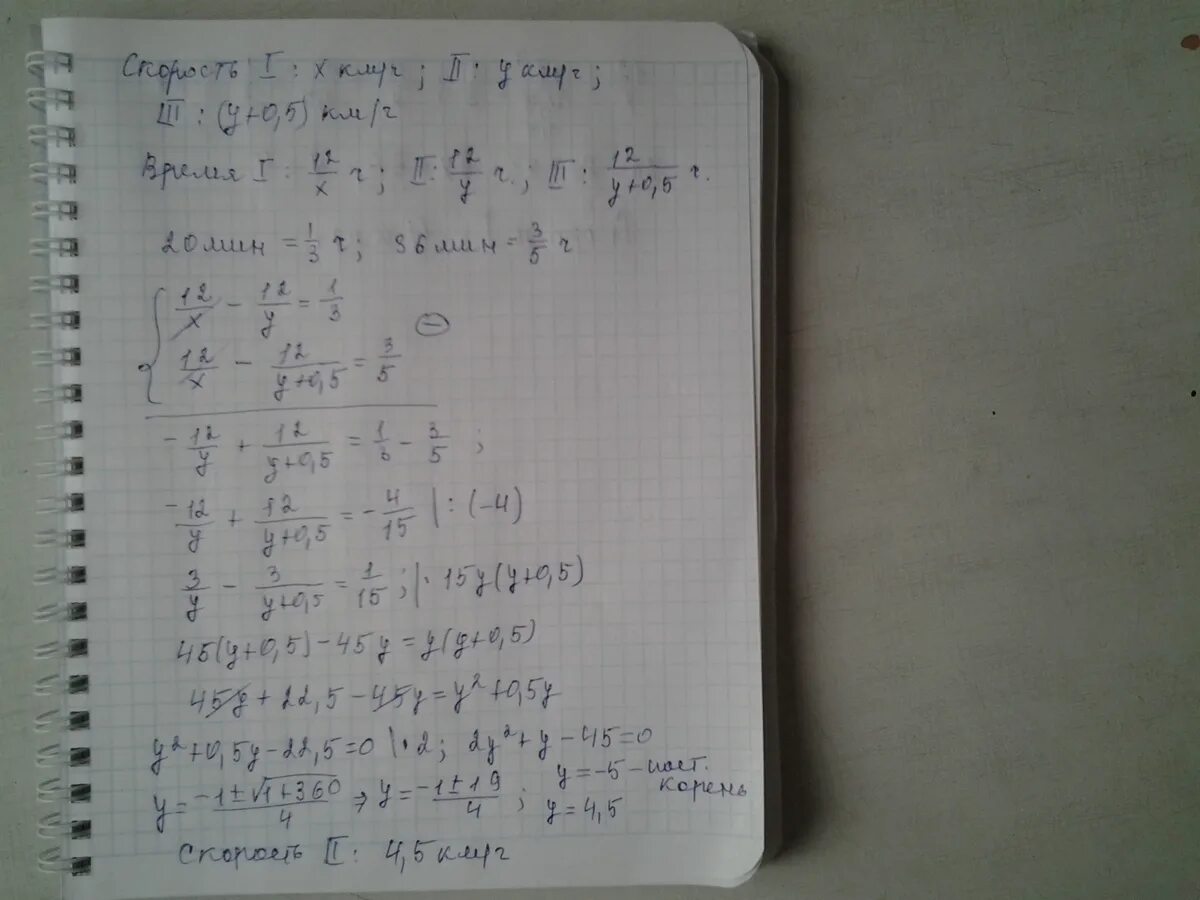 Скорость I : x км/ч ; II : y км/ч ;
III : (y+0,5) км/ч
Время I : 12/x ч ; II : 12/y ч. ; III : 12/(y+0,5) ч.
20 мин = 1/3 ч ; 36 мин = 3/5 ч
12/x - 12/y = 1/3
12/x - 12/(y+0,5) = 3/5 ⊖
- 12/y + 12/(y+0,5) = 1/3 - 3/5 ;
- 12/y + 12/(y+0,5) = - 4/15 | : (-4)
3/y - 3/(y+0,5) = 1/15 ; | · 15y(y+0,5)
45(y+0,5) - 45y = y(y+0,5)
45y + 22,5 - 45y = y² + 0,5y
y² + 0,5y - 22,5 = 0 | · 2 ; 2y² + y - 45 = 0
y = (-1 ± √(1+360))/4 ⇒ y = (-1 ± 19)/4 ; y = -5 - пост. корень
y = 4,5
Скорость II : 4,5 км/ч